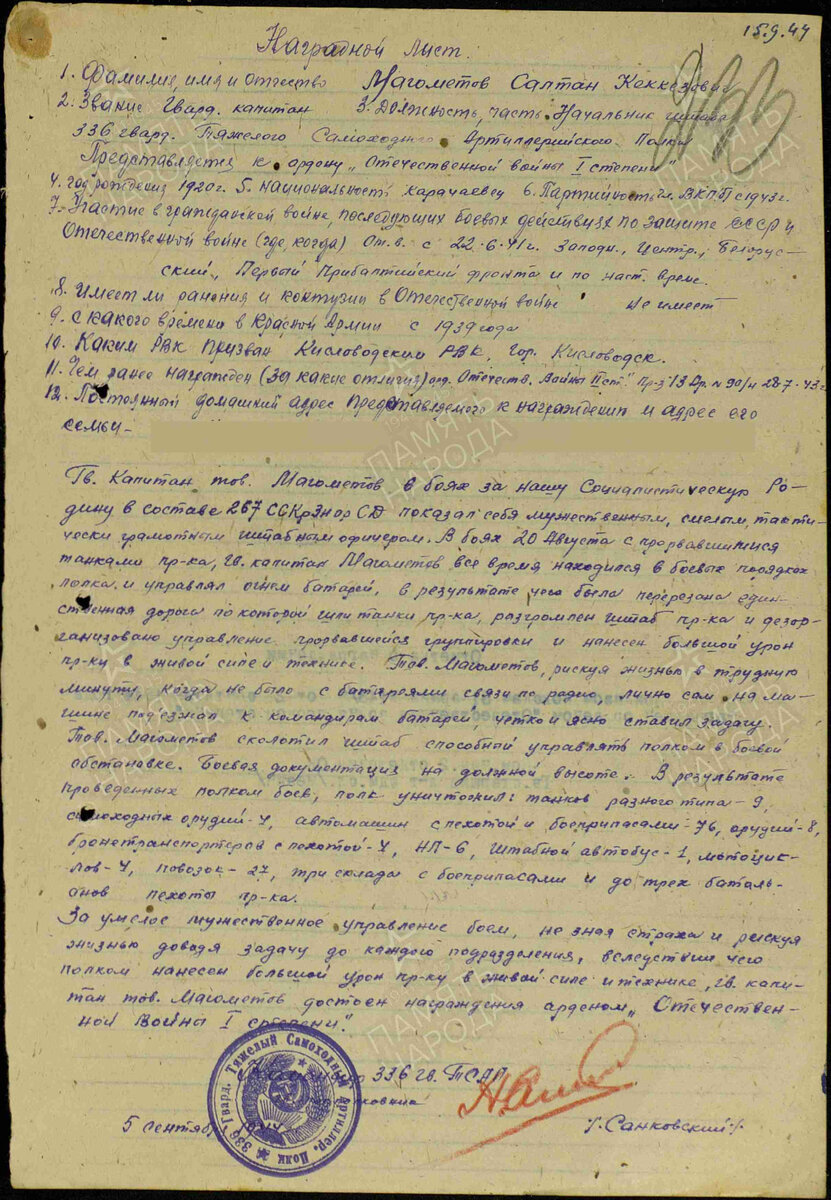 15.9.44
Наградной лист.
1. Фамилие, имя и отчество Магометов Салтан Кеккезович
2. Звание Гвард. капитан 3. Должность, часть Начальник штаба
336 гвард. Тяжелого Самоходного Артиллерийского Полка
Представляется к ордену „Отечественной войны I степени"
4. год рождения 1920г. 5. национальность карачаевец 6. Партийность чл. ВКПБ с 1943г.
7. Участие в гражданской войне, последующих боевых действиях по защите СССР и
Отечественной войне (где, когда) От. в. с 22.6.41г. Западн., Центр., Белорус-
ский, Первый Прибалтийский фронта и по наст. время.
8. Имеет ли ранения и контузии в Отечественной войне не имеет
9. с какого времени в Красной Армии с 1939 года
10. Каким РВК призван Кисловодским РВК, гор. Кисловодск.
11. Чем ранее награжден (за какие отличия) орд. Отечеств. Войны II ст." Пр-з 13 Ар. № 90/н 28.7.43г.
12. Постоянный домашний адрес представляемого к награждению и адрес его
семьи-
Гв. Капитан тов. Магометов в боях за нашу Социалистическую Ро-
дину в составе 267 СД показал себя мужественным, смелым, такти-
чески грамотным штабным офицером. В боях 20 Августа с прорвавшимися
танками пр-ка, гв. капитан Магометов все время находился в боевых порядках
полка и управлял огнем батарей, в результате чего была перерезана един-
ственная дорога по которой шли танки пр-ка, разгромлен штаб пр-ка и дезор-
ганизовано управление прорвавшейся группировки и нанесен большой урон
пр-ку в живой силе и технике. Тов. Магометов, рискуя жизнью в трудную
минуту, когда не было с батареями связи по радио, лично сам на ма-
шине подъезжал к командирам батарей, четко и ясно ставил задачу.
Тов. Магометов сколотил штаб способный управлять полком в боевой
обстановке. Боевая документация на должной высоте. В результате
проведенных полком боев, полк уничтожил: танков разного типа - 9,
самоходных орудий-4, автомашин с пехотой и боеприпасами-76, орудий-8,
бронетранспортеров с пехотой-4, НП-6, штабной автобус-1, мотоцик-
лов-4, повозок-27, три склада с боеприпасами и до трех баталь-
онов пехоты пр-ка.
За умелое мужественное управление боем, не зная страха и рискуя
жизнью доводя задачу до каждого подразделения, вследствии чего
полком нанесен большой урон пр-ку в живой силе и технике, гв. капи-
тан тов. Магометов достоен награждения орденом „Отечествен-
ной Войны I степени."
336 гв. ТСАП
5 Сентября 1944 /.Санковский/.
336 Гвард. Тяжелый Самоходный Артиллер. Полк
ПАМЯТЬ НАРОДА